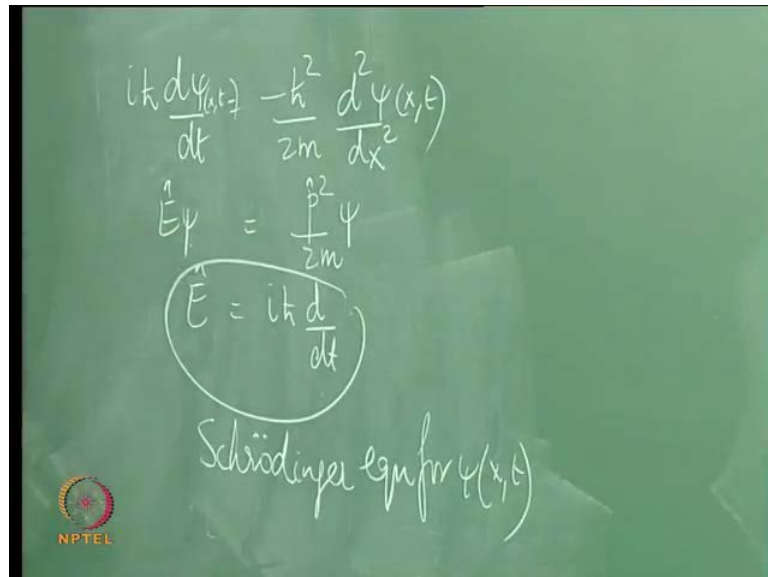 iħ dψ(x,t)/dt -ħ²/2m d²ψ(x,t)/dx²
Êψ = p̂²/2m ψ
Ê = iħ d/dt
Schrödinger eqn for ψ(x,t)
NPTEL